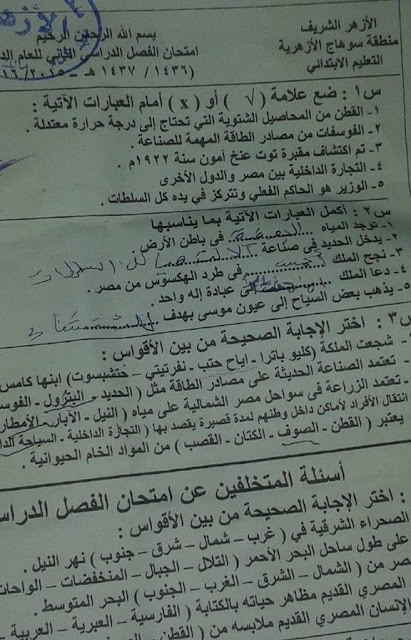 الأزهر الشريف
منطقة سوهاج الأزهرية
التعليم الابتدائي
بسم الله الرحمن الرحيم
امتحان الفصل الدراسي الثاني للعام الدرا
(١٤٣٦/ ١٤٣٧ هـ - ٢٠١٥/
س١ : ضع علامة ( √ ) أو ( x ) أمام العبارات الآتية :
١- القطن من المحاصيل الشتوية التي تحتاج إلى درجة حرارة معتدلة .
٢- الفوسفات من مصادر الطاقة المهمة للصناعة .
٣- تم اكتشاف مقبرة توت عنخ آمون سنة ١٩٢٢م .
٤- التجارة الداخلية بين مصر والدول الأخرى
٥- الوزير هو الحاكم الفعلي وتتركز في يده كل السلطات .
س٢ : أكمل العبارات الآتية بما يناسبها
١- توجد المياه الجوفية في باطن الأرض .
٢- يدخل الحديد في صناعة
٣- نجح الملك أحمس في طرد الهكسوس من مصر .
٤- دعا الملك إلى عبادة إله واحد .
٥- يذهب بعض السياح إلى عيون موسى بهدف
س٣ : اختر الإجابة الصحيحة من بين الأقواس :
- شجعت الملكة (كليو باترا - اياح حتب - نفرتيتي - حتشبسوت) ابنها كامس
- تعتمد الصناعة الحديثة على مصادر الطاقة مثل ( الحديد - البترول - الفوس
- تعتمد الزراعة في سواحل مصر الشمالية على مياه ( النيل - الآبار - الأمطار
انتقال الأفراد لأماكن داخل وطنهم لمدة قصيرة يقصد بها ( التجارة الداخلية - السياحة الدا
يعتبر ( القطن - الصوف - الكتان - القصب ) من المواد الخام الحيوانية .
أسئلة المتخلفين عن امتحان الفصل الدراس
: اختر الإجابة الصحيحة من بين الأقواس :
الصحراء الشرقية في ( غرب - شمال - شرق - جنوب ) نهر النيل .
على طول ساحل البحر الأحمر ( التلال - الجبال - المنخفضات - الواحات
مصر من ( الشمال - الشرق - الغرب - الجنوب ) البحر المتوسط .
المصري القديم مظاهر حياته بالكتابة ( الفارسية - العبرية - العربية -
الإنسان المصري القديم ملابسه من ( القطن -